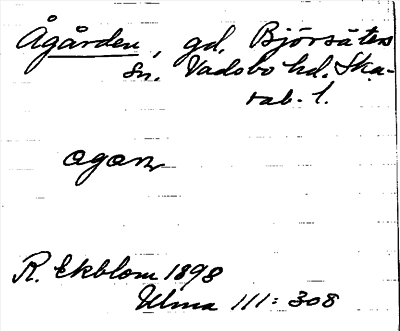 Ågården, gd. Björsäters
sn. Vadsbo hd. Ska-
rab. l.
R. Ekblom 1898
Ulma 111: 308